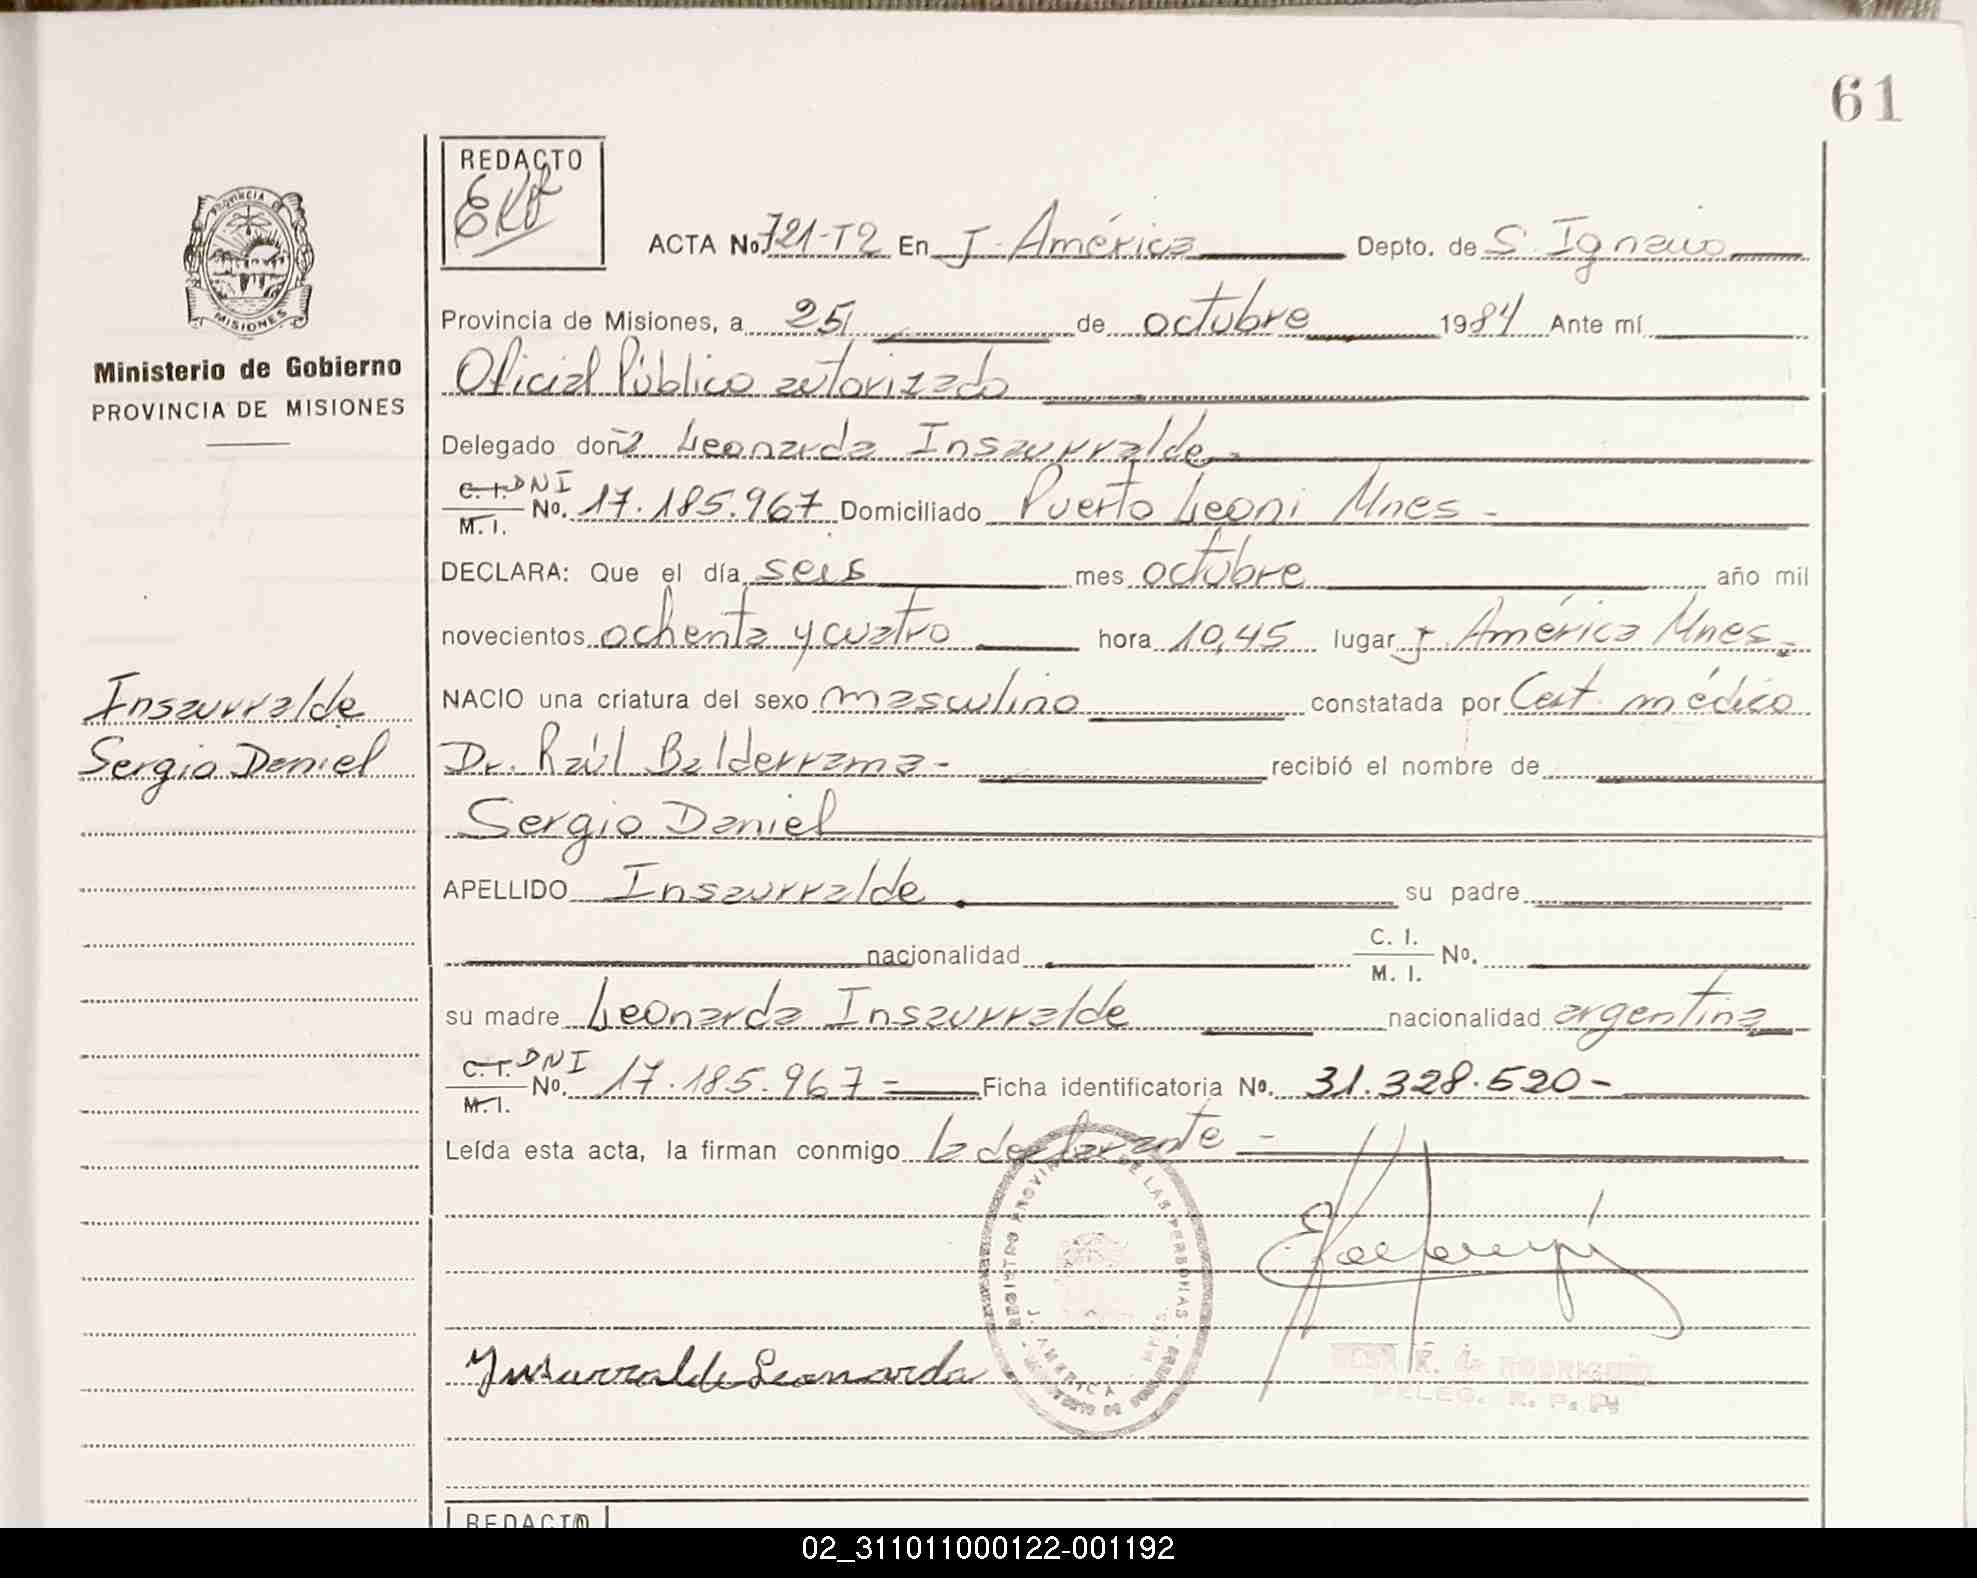 61
REDACTO
ACTA No. 721-T2 En J. América Depto. de S. Ignacio
PROVINCIA DE MISIONES
Provincia de Misiones, a 25 de octubre 1984 Ante mí
Ministerio de Gobierno
PROVINCIA DE MISIONES
Oficial Público autorizado
Delegado doña Leonarda Insaurralde
C.I. DNI
M. I. No. 17.185.967 Domiciliado Puerto Leoni Mnes -
DECLARA: Que el día seis mes octubre año mil
novecientos ochenta y cuatro hora 10,45 lugar J. América Mnes.
Insaurralde
Sergio Daniel
NACIO una criatura del sexo masculino constatada por Cert. médico
Dr. Raúl Balderrama - recibió el nombre de
Sergio Daniel
APELLIDO Insaurralde su padre
nacionalidad C. I. M. I. No.
su madre Leonarda Insaurralde nacionalidad argentina
C.I. DNI
M.I. No. 17.185.967 = Ficha identificatoria No. 31.328.520 -
Leída esta acta, la firman conmigo la declarante -
REGISTRO PROVINCIAL DE LAS PERSONAS
J. AMERICA MNES.
Insurralde Leonarda
R. de RODRIGUEZ
DELEG. R. P. P.
REDACTO
02_311011000122-001192